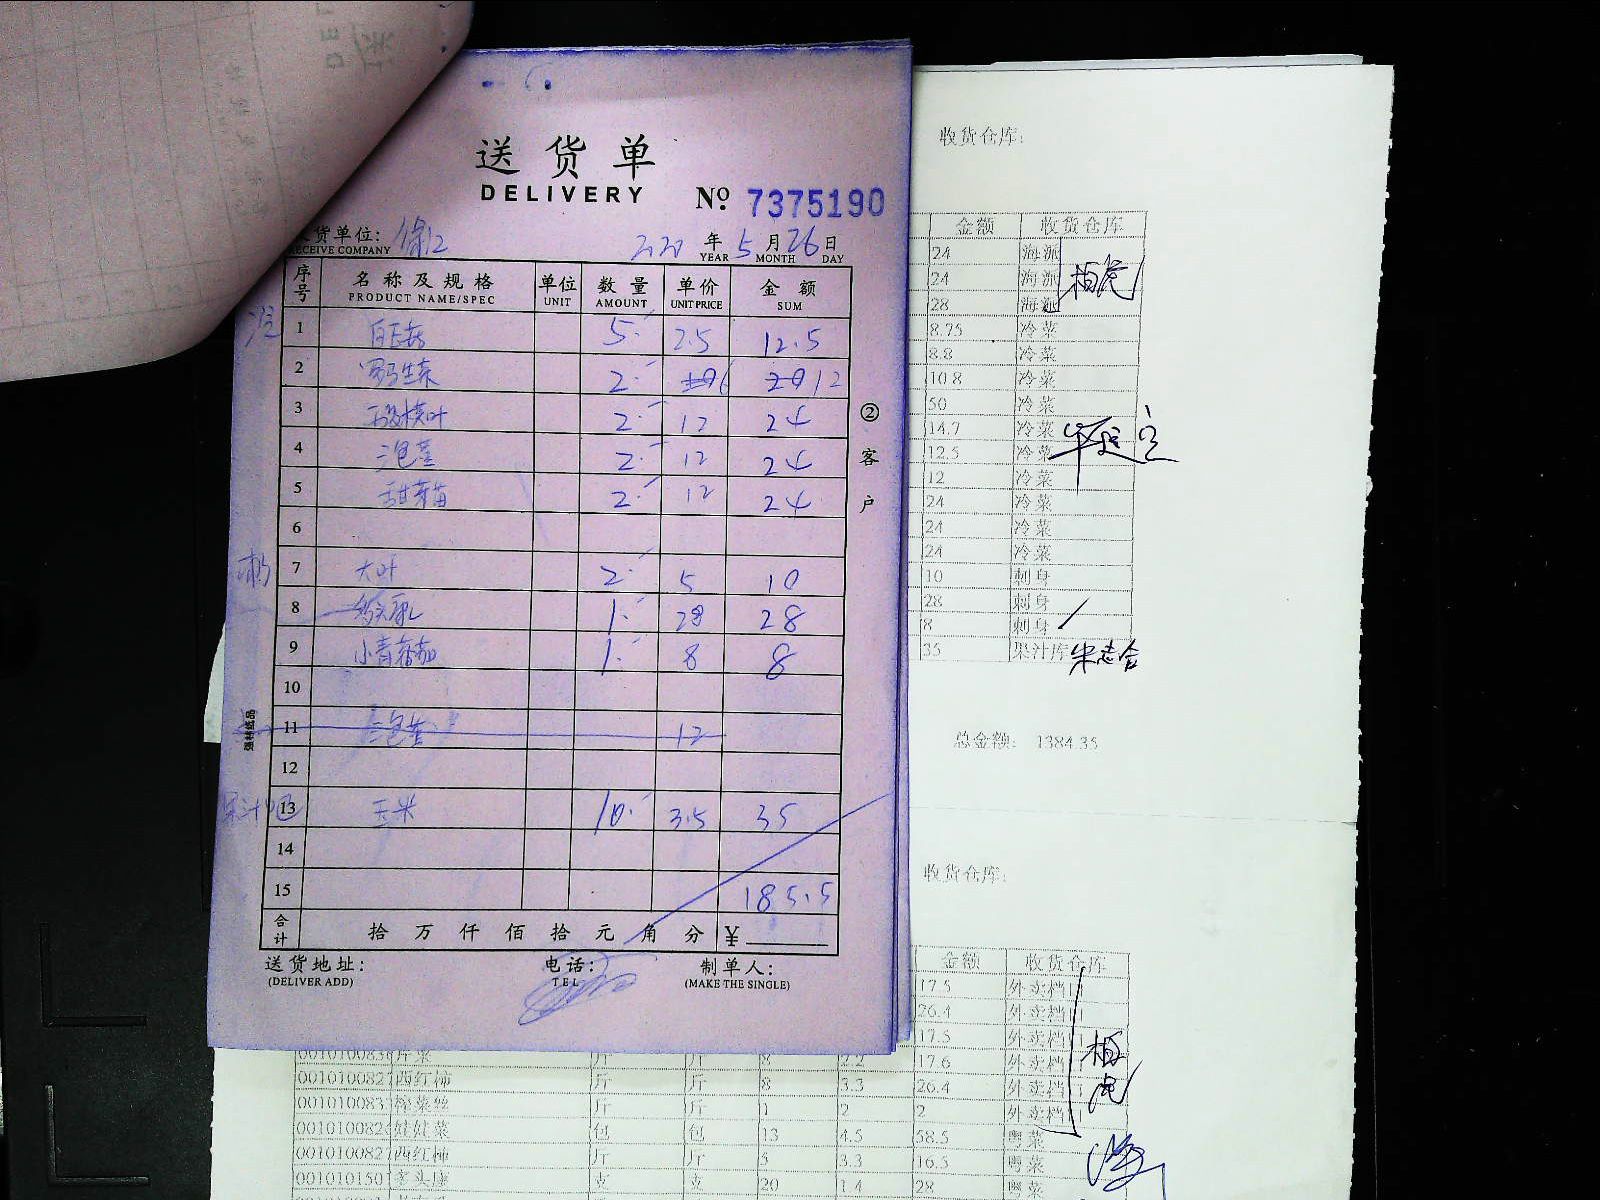 送货单
DELIVERY
№ 7375190
货单位: 徐汇
CEIVE COMPANY
2020 年 5 月 26 日
YEAR MONTH DAY
序号 名称及规格 单位 数量 单价 金额
PRODUCT NAME/SPEC UNIT AMOUNT UNIT PRICE SUM
1 5 2.5 12.5
2 罗马生菜 2 6 12
3 2 12 24
4 三色堇 2 12 24
5 甜菜苗 2 12 24
6
刺 7 大叶 2 5 10
8 1 28 28
9 小青番茄 1 8 8
10
11 三色堇 12
12
果汁吧 13 玉米 10 3.5 35
14
15 185.5
合计 拾 万 仟 佰 拾 元 角 分 ¥
送货地址: 电话: 制单人:
(DELIVER ADD) TEL (MAKE THE SINGLE)
② 客户
强林纸品
收货仓库:
金额 收货仓库
24 海派
24 海派
28 海派
8.75 冷菜
8.8 冷菜
10.8 冷菜
50 冷菜
14.7 冷菜
12.5 冷菜
12 冷菜
24 冷菜
24 冷菜
24 冷菜
10 刺身
28 刺身
8 刺身
35 果汁库
总金额: 1384.35
收货仓库:
金额 收货仓库
17.5 外卖档口
26.4 外卖档口
17.5 外卖档口
芹菜 斤 斤 8 2.2 17.6 外卖档口
西红柿 斤 斤 8 3.3 26.4 外卖档口
斤 斤 1 2 2 外卖档口
娃娃菜 包 包 13 4.5 58.5 粤菜
西红柿 斤 斤 5 3.3 16.5 粤菜
001010150 20 1.4 28 粤菜